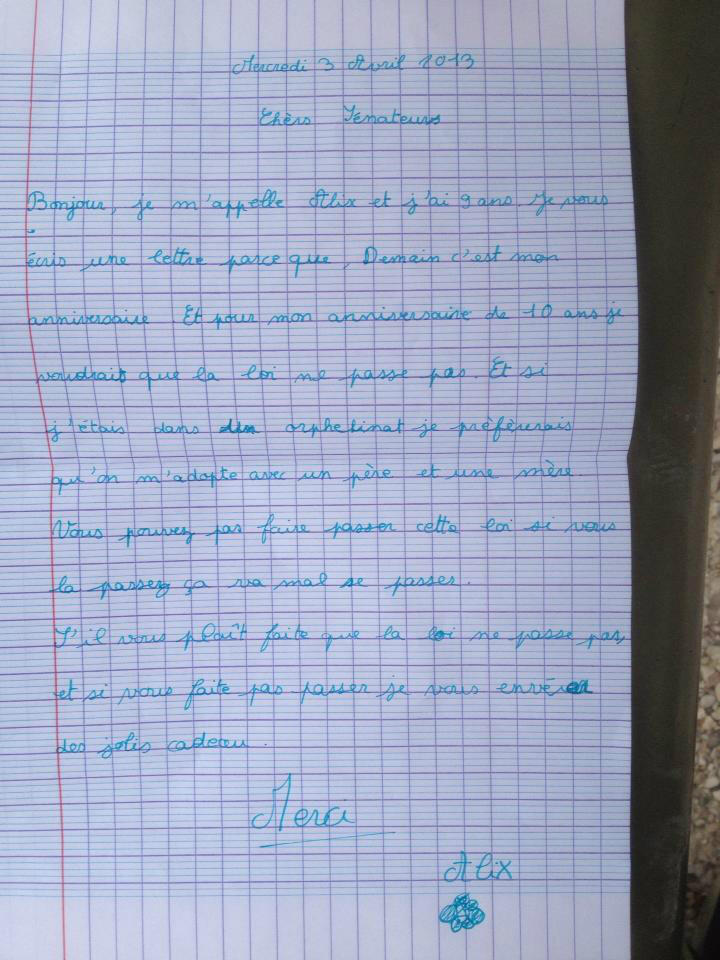 Mercredi 3 Avril 2013
Chèrs Sénateurs
Bonjour, je m'appelle Alix et j'ai 9 ans. Je vous
écris une lettre parce que, Demain c'est mon
anniversaire Et pour mon anniversaire de 10 ans je
voudrais que la loi ne passe pas. Et si
j'étais dans un orphelinat je préfèrerais
qu'on m'adopte avec un père et une mère.
Vous pouvez pas faire passer cette loi si vous
la passez ça va mal se passer.
S'il vous plaît faite que la loi ne passe pas,
et si vous faite pas passer je vous
des jolis cadeau.
Merci
Alix